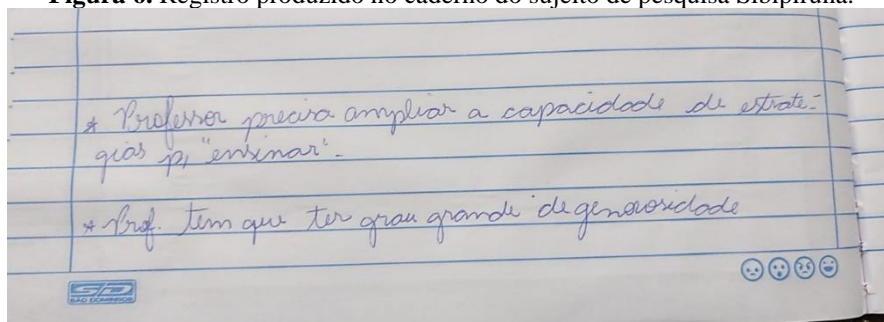 Figura 6. Registro produzido no caderno do sujeito de pesquisa Sibipiruna.
* Professor precisa ampliar a capacidade de estraté-
gias p/ "ensinar".
* Prof. tem que ter grau grande de generosidade
SD
SÃO DOMINGOS